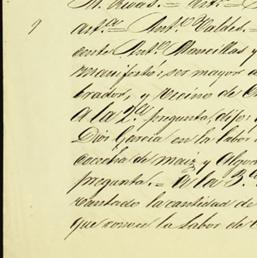 M. Rivas.= Art.=
art.ce Ant.o Valdes.=
ante Ant.o Mancillas y
manifestó, ser mayor de
brador, y vecino de
A la 2.a pregunta dijo:
Dios Garcia en la labor
cocecha de maiz y algo
pregunta.= A la 3.a
rantado la cantidad de
que conoce la labor de